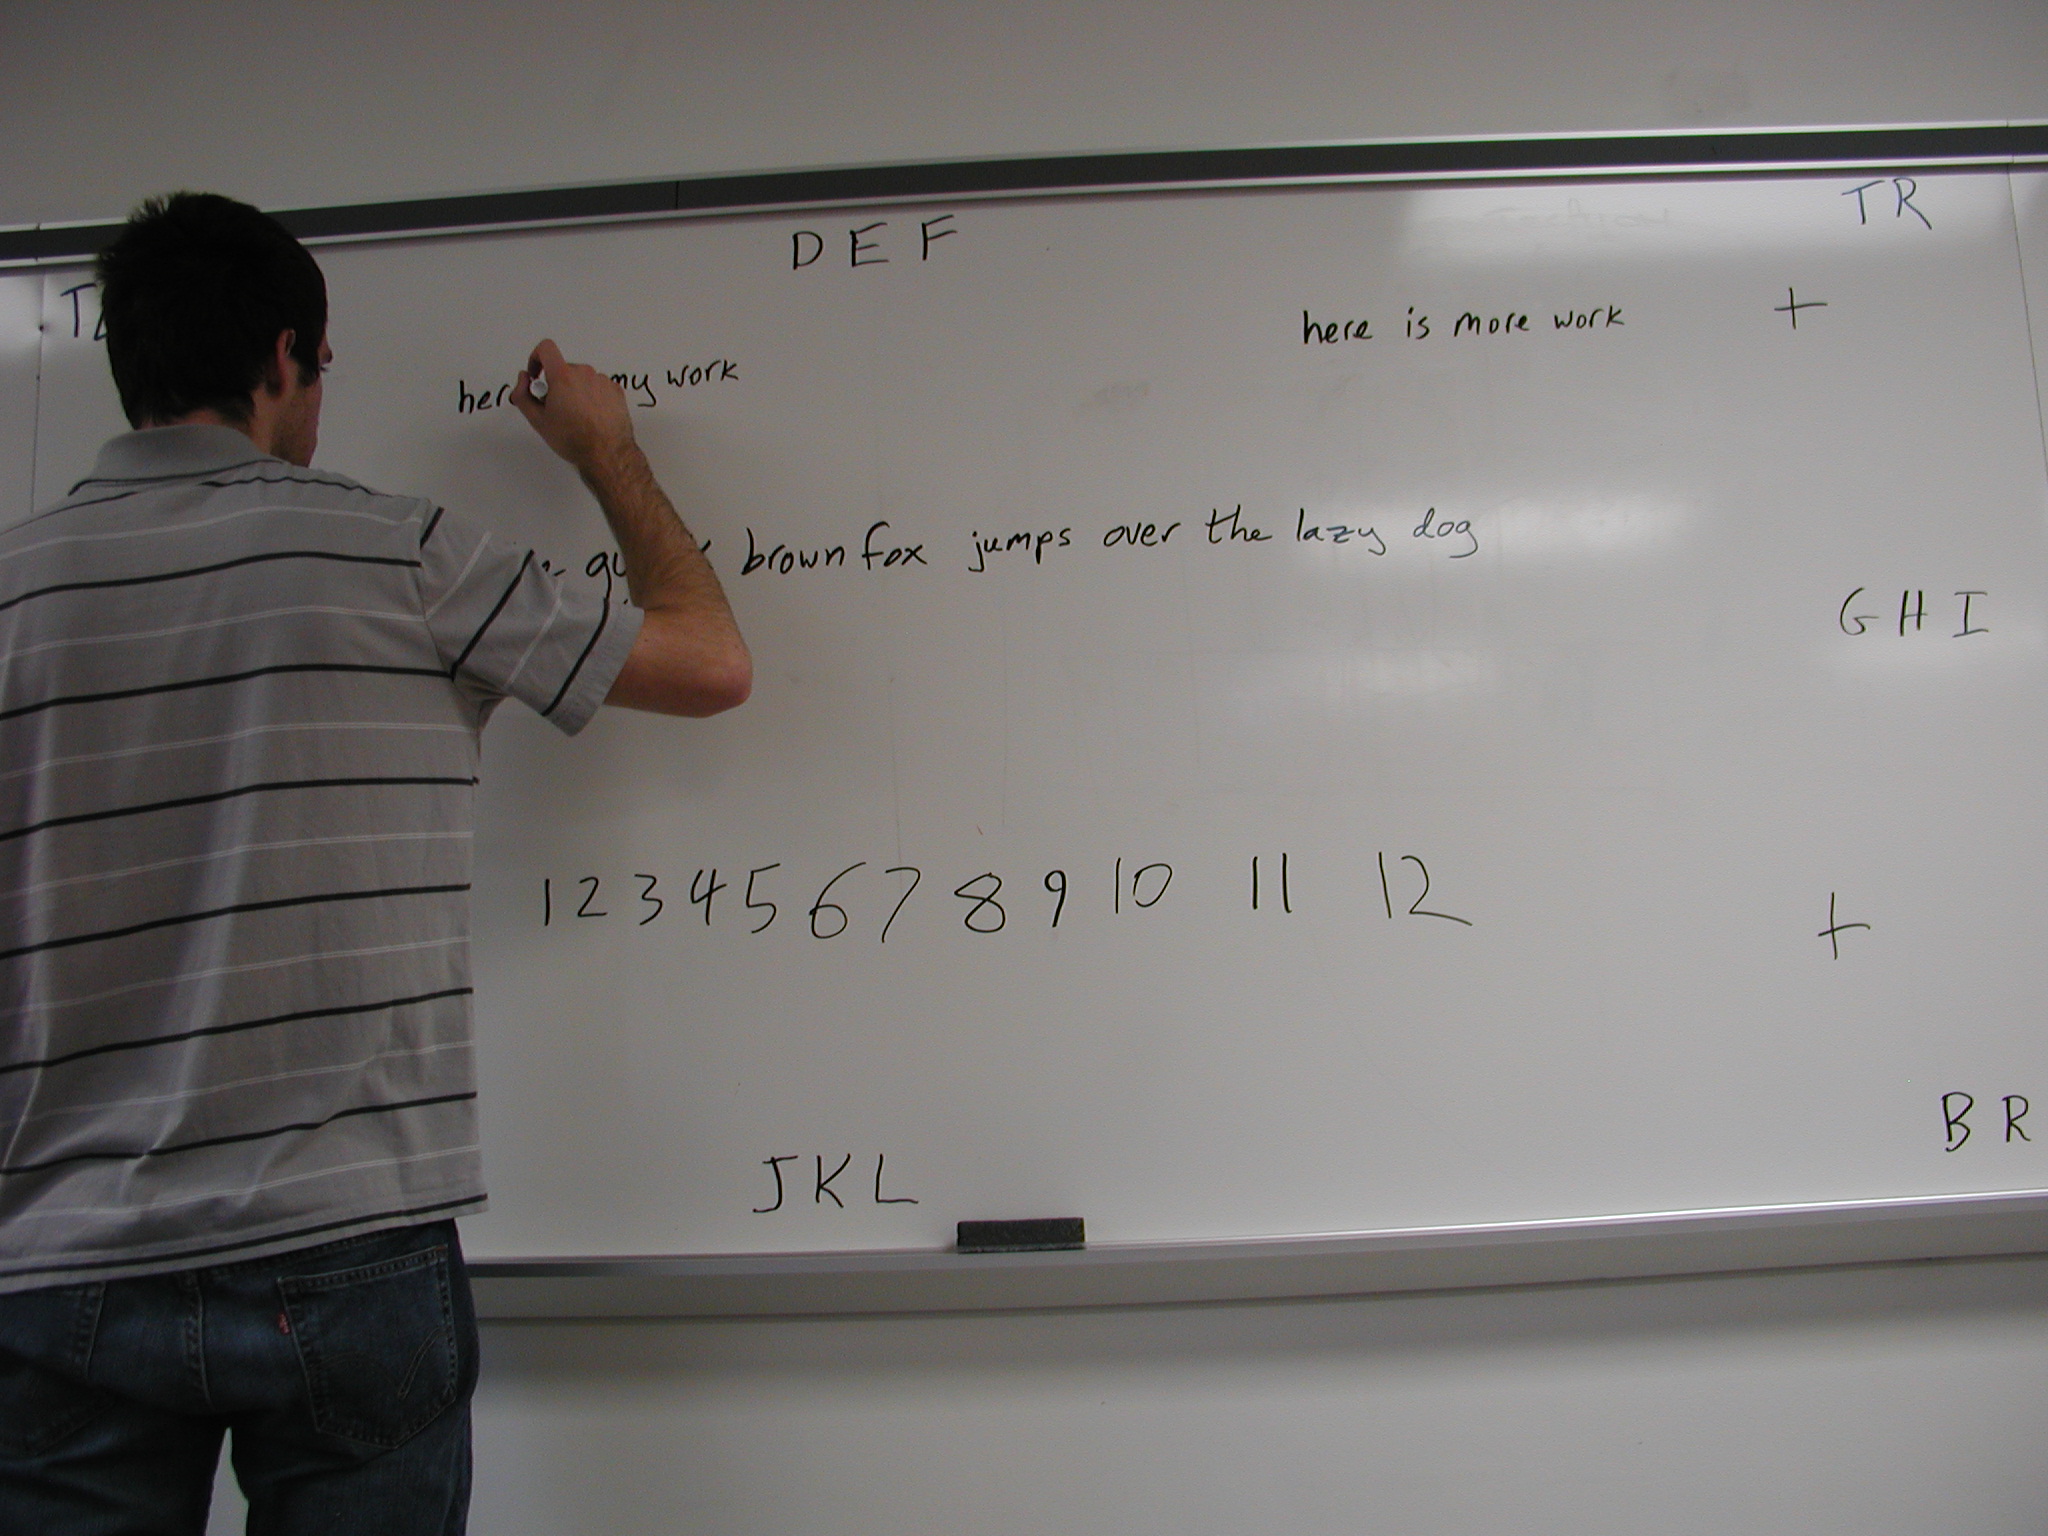 TR
D E F
here is more work +
my work
brown fox jumps over the lazy dog
G H I
1 2 3 4 5 6 7 8 9 10 11 12
+
B R
J K L